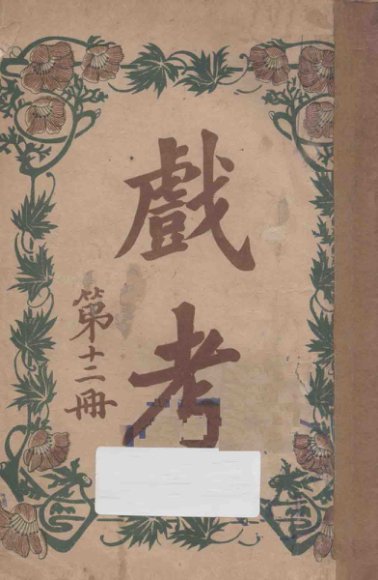 戲考
第十二冊